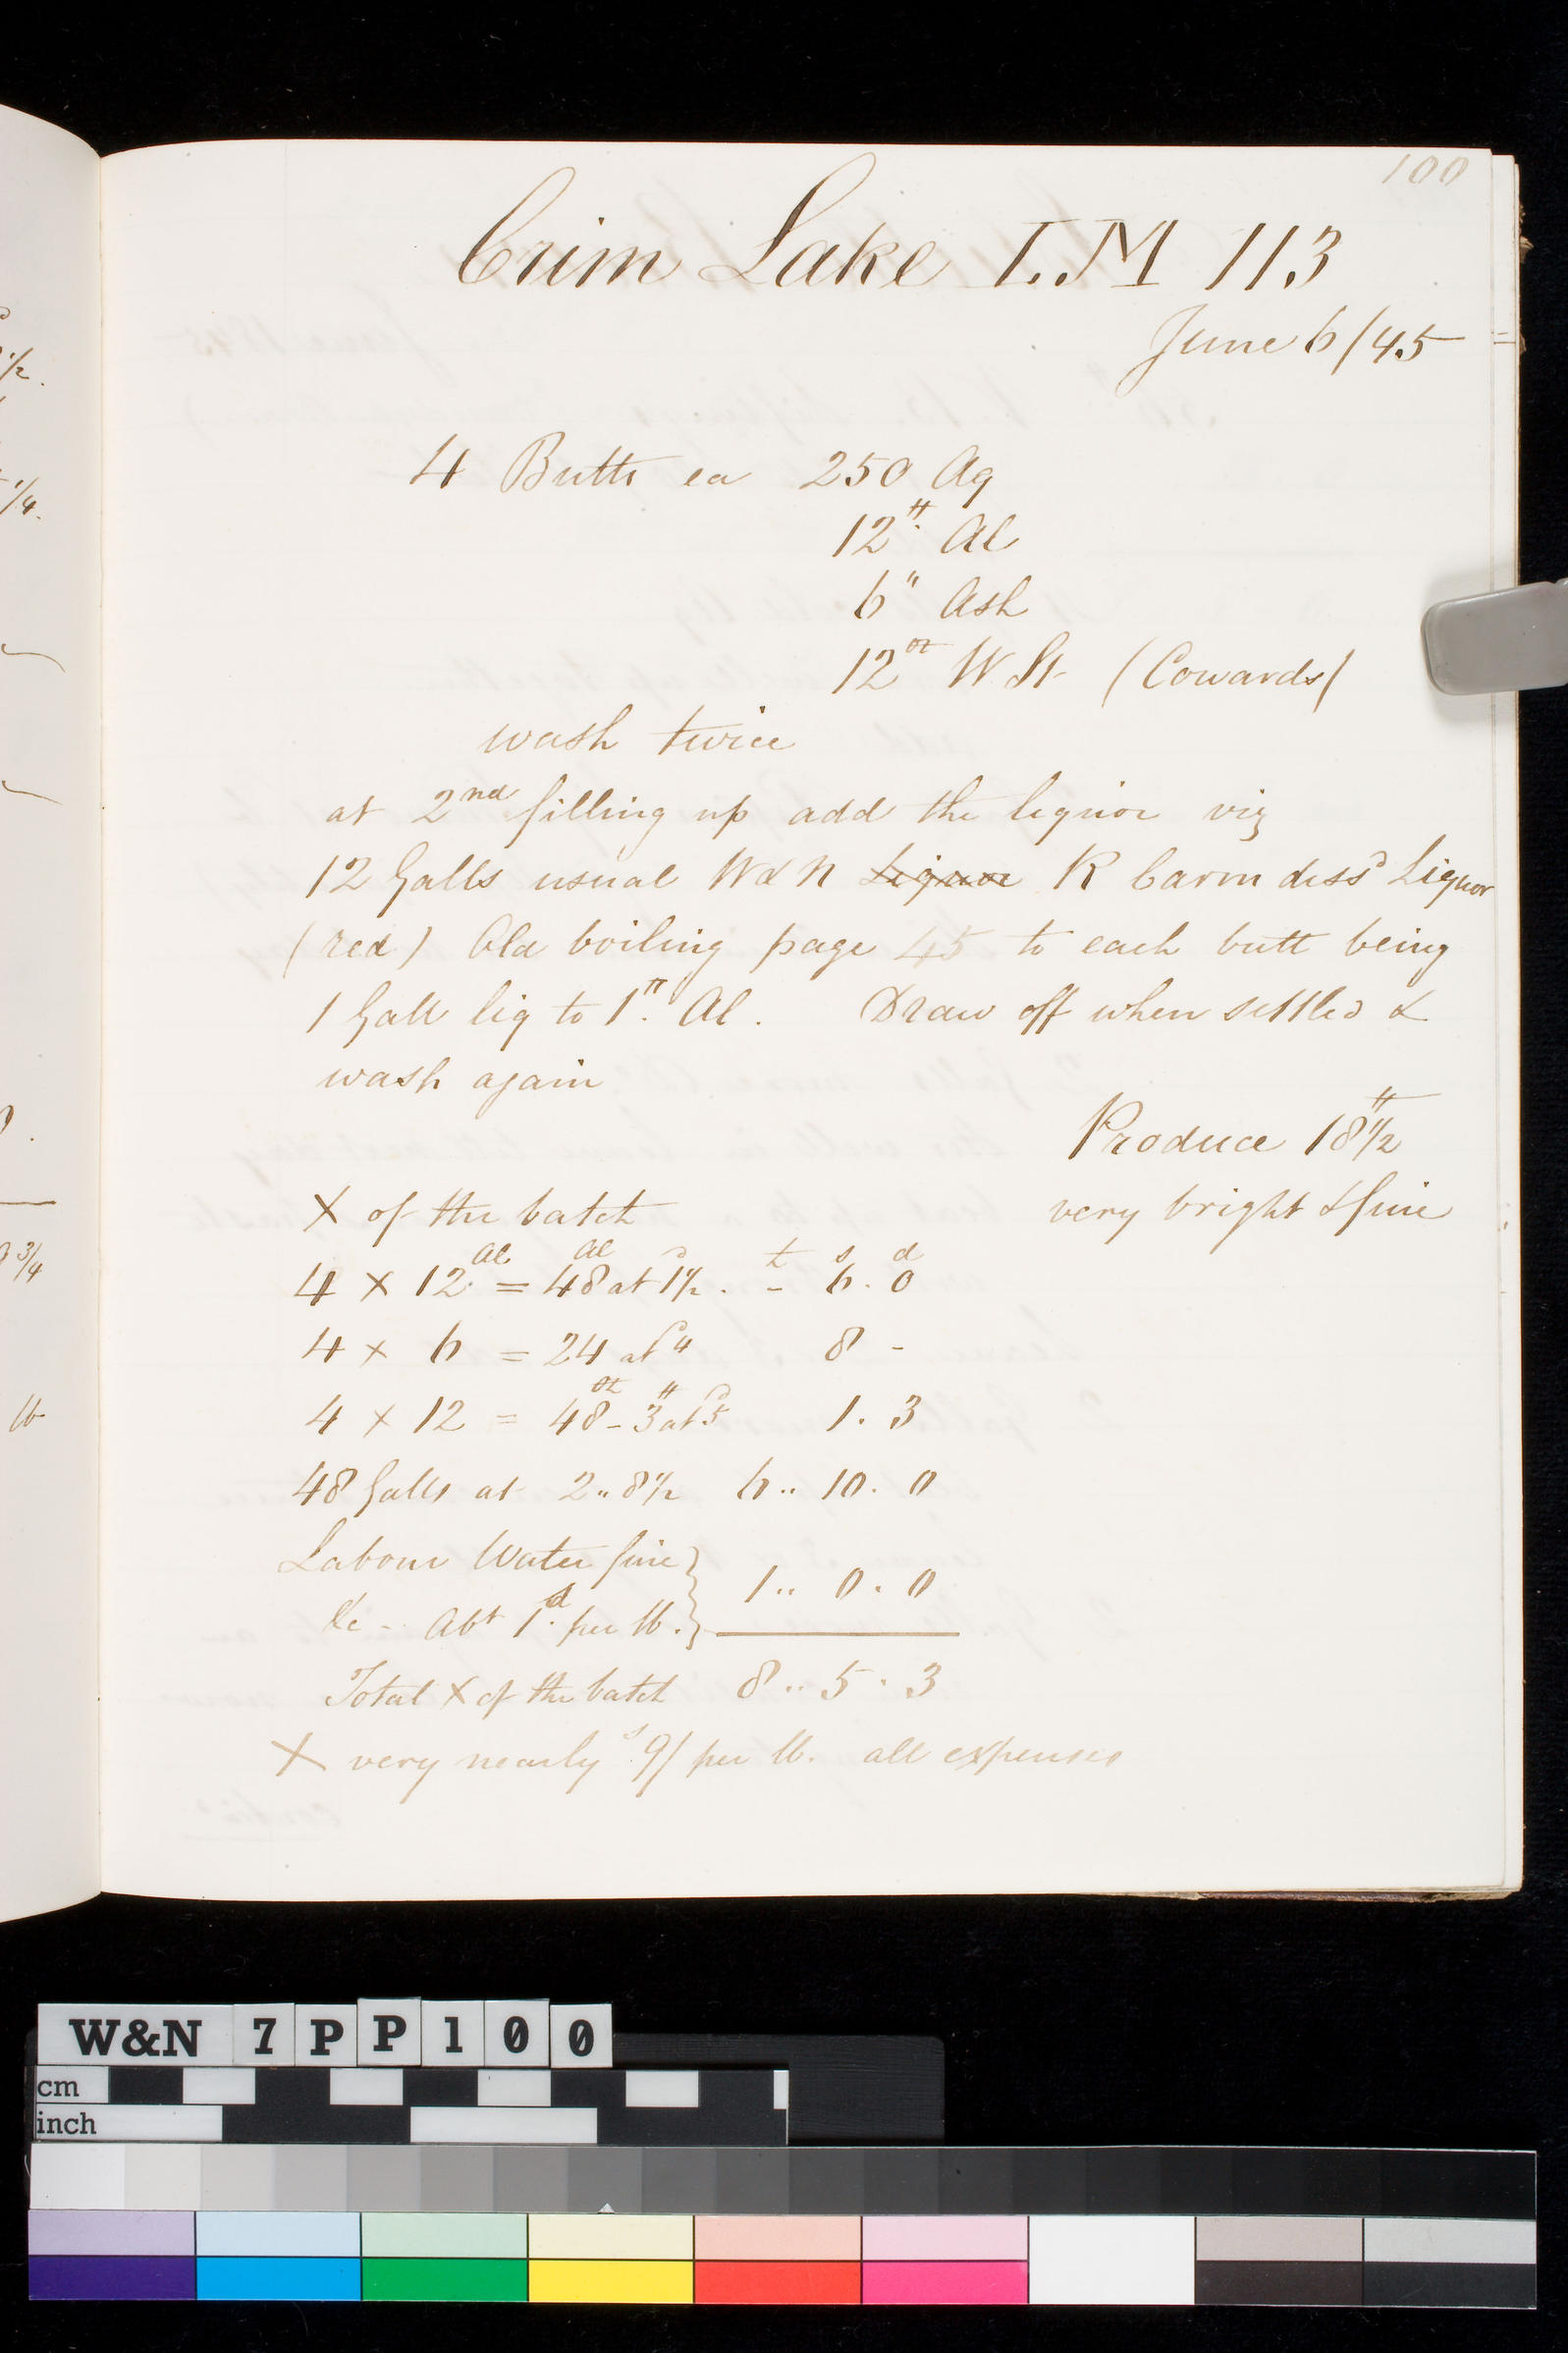 100
Crim Lake I.M 113
June 6/45
4 Butts ea 250 Aq
12 ℔ Al
6 " Ash
12 oz W St (Cowards)
wash twice
at 2nd filling up add the liquor viz
12 Galls usual W & N Liquor R Carm dissd Liquor
(red) Old boiling page 45 to each butt being
1 Gall liq to 1 ℔. Al. Draw off when settled &
wash again
Produce 18 ℔ 1/2
very bright & fine
X of the batch
4 X 12 Al = 48 Al at d 1 1/2. £ - s 6. d 0
4 x 6 = 24 at d 4 8 -
4 x 12 = 48 oz - 3 ℔ at d 5 1. 3
48 Galls at 2.. 8 1/2 6.. 10. 0
Labour Water fire
&c - Abt 1d. per lb. 1.. 0. 0
Total X of the batch 8.. 5. 3
X very nearly s 9/ per lb. all expenses
1/2.
1/4.
3/4
lb
W&N 7 P P 1 0 0
cm
inch